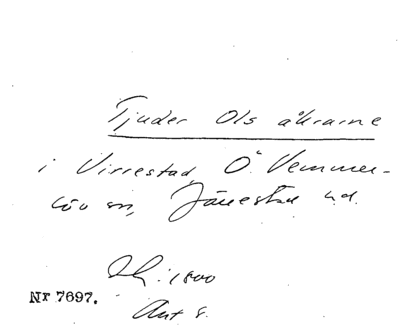 Tjuder Ols åkrarne
i Virrestad, Ö. Vemmer-
löv sn, Järrestad hd.
Sk. 1800
Nr 7697.
Ant 8.